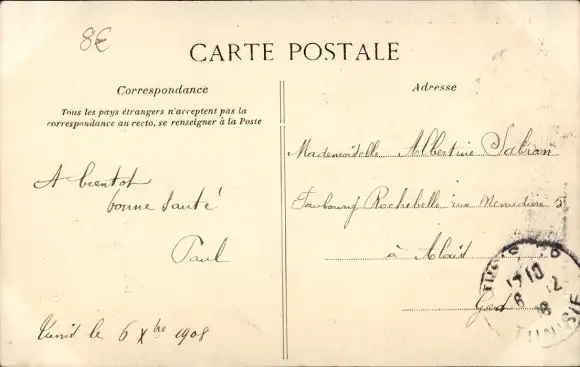 8€
CARTE POSTALE
Correspondance
Tous les pays étrangers n'acceptent pas la
correspondance au recto, se renseigner à la Poste
A bientot
bonne santé
Paul
Tunis le 6 Xbre 1908
Adresse
Mademoiselle Albertine Sabran
Faubourg Rochebelle rue 5
à Alais
Gard
TUNIS
TUNISIE